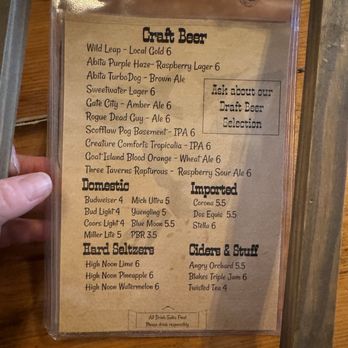 Craft Beer
Wild Leap - Local Gold 6
Abita Purple Haze- Raspberry Lager 6
Abita TurboDog - Brown Ale
Sweetwater Lager 6
Gate City - Amber Ale 6
Rogue Dead Guy - Ale 6
Scofflaw Pog Basement - IPA 6
Creature Comforts Tropicalia - IPA 6
Goat Island Blood Orange - Wheat Ale 6
Three Taverns Rapturous - Raspberry Sour Ale 6
Ask about our
Draft Beer
Selection
Domestic
Budweiser 4 Mich Ultra 5
Bud Light 4 Yuengling 5
Coors Light 4 Blue Moon 5.5
Miller Lite 5 PBR 3.5
Imported
Corona 5.5
Dos Equis 5.5
Stella 6
Hard Seltzers
High Noon Lime 6
High Noon Pineapple 6
High Noon Watermelon 6
Ciders & Stuff
Angry Orchard 5.5
Blakes Triple Jam 6
Twisted Tea 4
All Drink Sales Final
Please drink responsibly